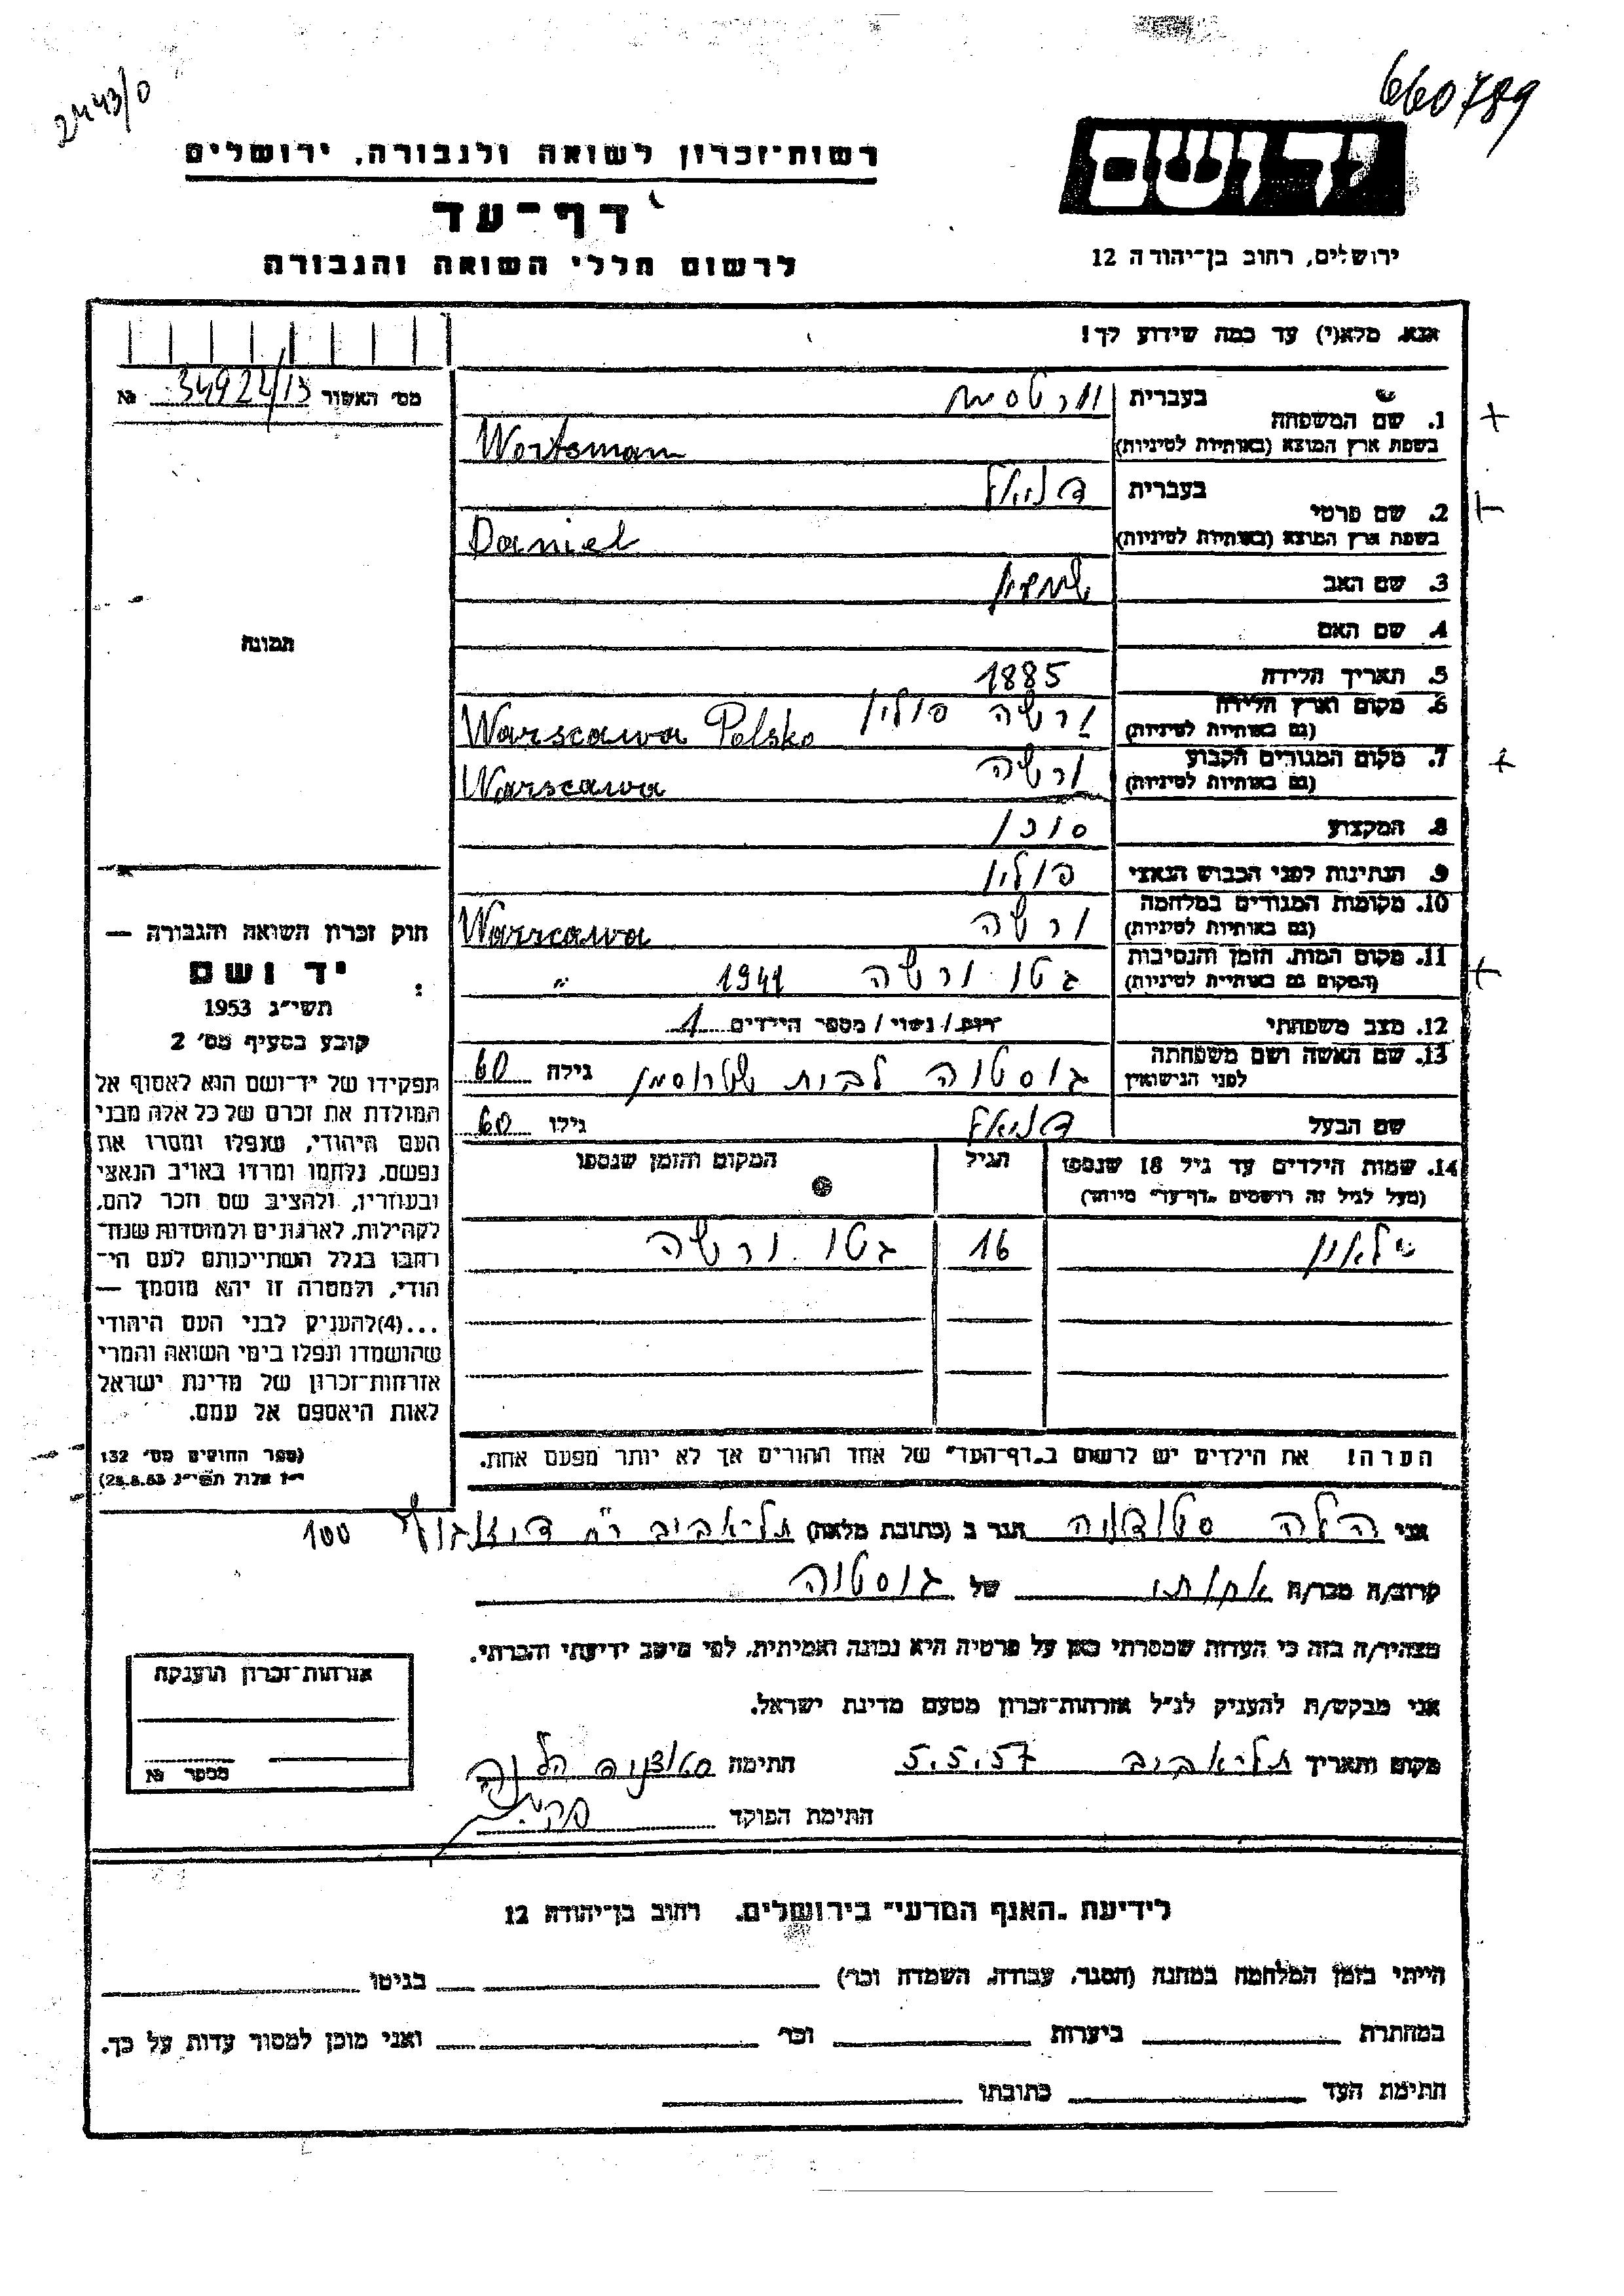 2443/0
660789
רשות־זכרון לשואה ולגבורה, ירושלים
יד ושם
דף־עד
לרשום חללי השואה והגבורה
ירושלים, רחוב בן־יהודה 12
אנא, מלא(י) עד כמה שידוע לך!
מס' האשור 34922/13 №
1. שם המשפחה
בעברית
בשפת ארץ המוצא (באותיות לטיניות) Wortsman
2. שם פרטי
בעברית דניאל
בשפת ארץ המוצא (באותיות לטיניות) Daniel
3. שם האב שמעון
4. שם האם
תמונה
5. תאריך הלידה 1885
6. מקום וארץ הלידה (גם באותיות לטיניות) ורשה פולין Warscawa Polsko
7. מקום המגורים הקבוע (גם באותיות לטיניות) ורשה Warscawa
8. המקצוע סוכן
9. הנתינות לפני הכבוש הנאצי פולין
10. מקומות המגורים במלחמה (גם באותיות לטיניות) ורשה Warscawa
11. מקום המות, הזמן והנסיבות (המקום גם באותיות לטיניות) גטו ורשה 1941 "
12. מצב משפחתי רווק / נשוי / מספר הילדים 1
13. שם האשה ושם משפחתה לפני הנישואין גוסטוה לבית גילה 60
שם הבעל דניאל גילו 60
14. שמות הילדים עד גיל 18 שנספו
(מעל לגיל זה רושמים "דף־עד" מיוחד)
הגיל
המקום והזמן שנספו
16 גטו ורשה
חוק זכרון השואה והגבורה —
יד ושם
תשי"ג 1953
קובע בסעיף מס' 2 :
תפקידו של יד־ושם הוא לאסוף אל
המולדת את זכרם של כל אלה מבני
העם היהודי, שנפלו ומסרו את
נפשם, נלחמו ומרדו באויב הנאצי
ובעוזריו, ולהציב שם וזכר להם,
לקהילות, לארגונים ולמוסדות שנח־
רבו בגלל השתייכותם לעם הי־
הודי, ולמטרה זו יהא מוסמך —
...(4)להעניק לבני העם היהודי
שהושמדו ונפלו בימי השואה והמרי
אזרחות־זכרון של מדינת ישראל
לאות היאספם אל עמם.
(ספר החוקים מס' 132
י"ז אלול תשי"ג 28.8.53)
הערה! את הילדים יש לרשום ב"דף־העד" של אחד ההורים אך לא יותר מפעם אחת.
אני הלה הגר ב (כתובת מלאה) תל־אביב רח דיזנגוף 100
קרוב/ה מכר/ה אחותו של גוסטוה
מצהיר/ה בזה כי העדות שמסרתי כאן על פרטיה היא נכונה ואמיתית, לפי מיטב ידיעתי והכרתי.
אני מבקש/ת להעניק לנ"ל אזרחות־זכרון מטעם מדינת ישראל.
מקום ותאריך תל־אביב 5.5.57 חתימה
חתימת הפוקד
אזרחות־זכרון הוענקה
מספר №
לידיעת "האגף המדעי" בירושלים. רחוב בן־יהודה 12
הייתי בזמן המלחמה במחנה (הסגר, עבודה, השמדה וכו') בגיטו
במחתרת ביערות וכו' ואני מוכן למסור עדות על כך.
חתימת העד כתובתו